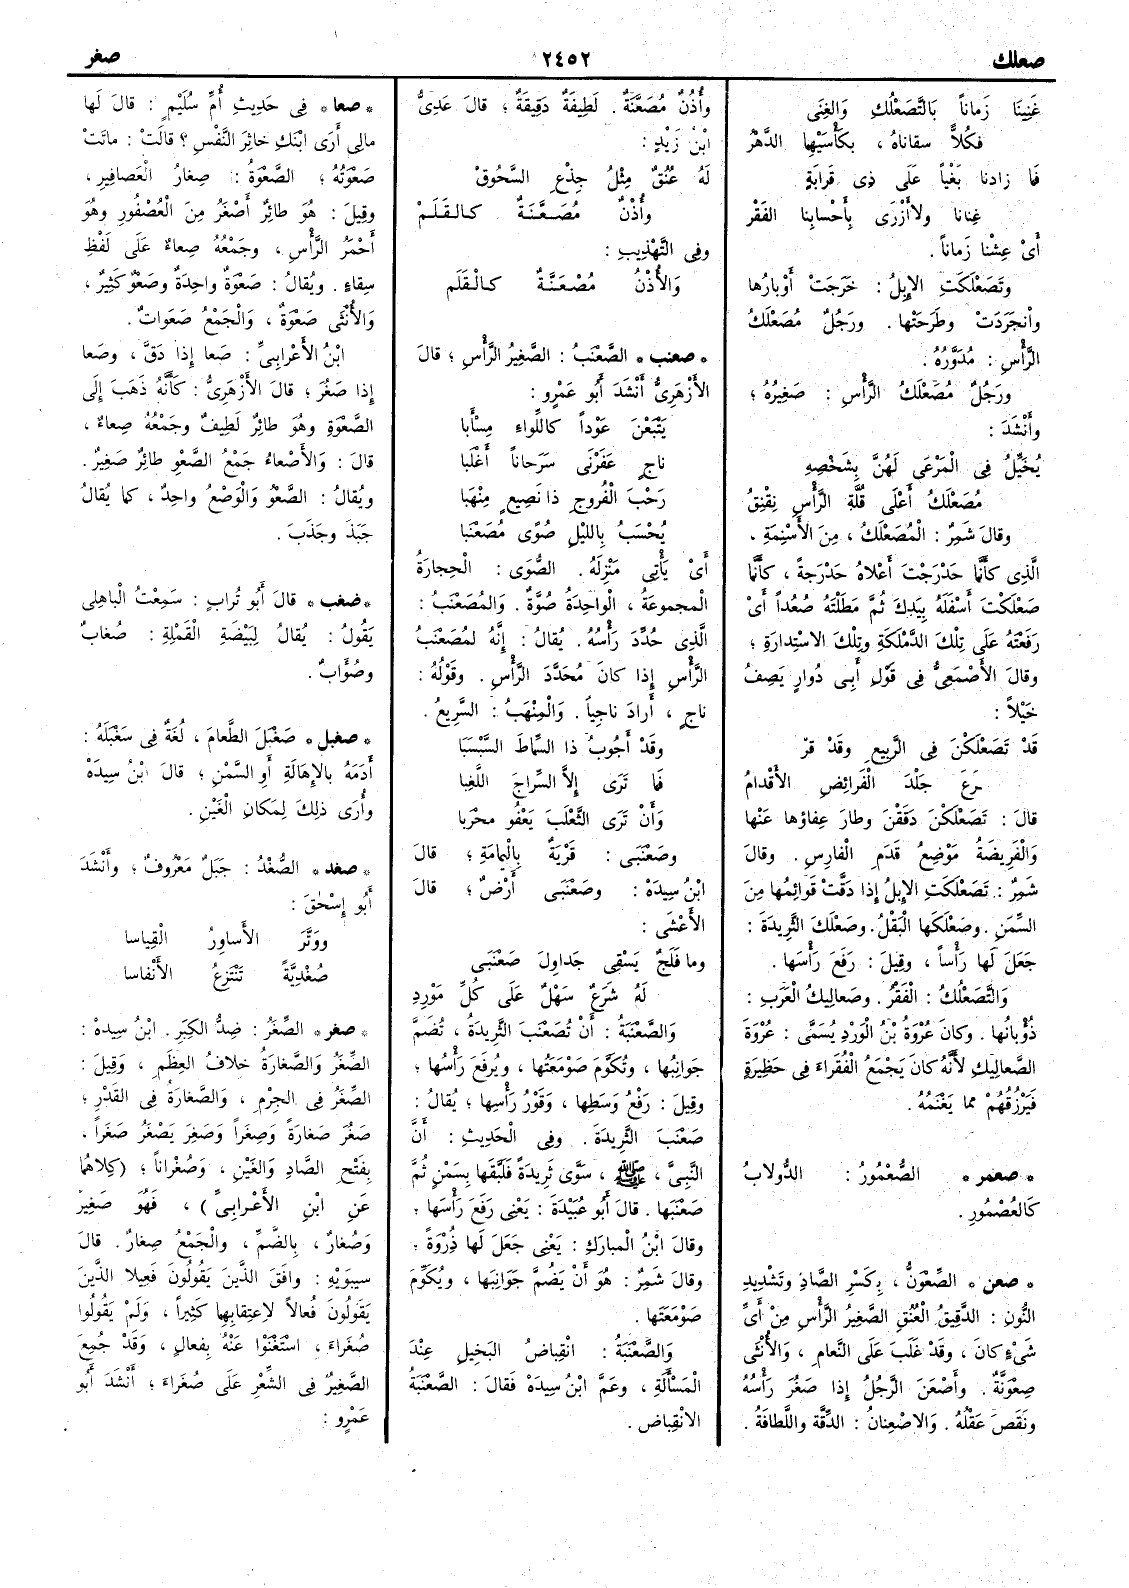 صعلك
٢٤٥٢
صغر
غَنِينَا زَماناً بَالتَّصَعْلُكِ وَالغِنَى
فكُلاًّ سقاناهُ ، بكَأْسَيْهِما الدَّهْرُ
فَما زادنا بَغْياً عَلَى ذِى قَرابَةٍ
غِنانا ولا أَزْرَى بِأَحْسابِنا الفَقْر
أَىْ عِشْنا زَماناً .
وتَصَعْلَكَتِ الإِبِلُ : خَرَجَتْ أَوْبارُها
وانْجَرَدَتْ وطَرَحَتْها . ورَجُلٌ مُصَعْلَكُ
الرَّأْسِ : مُدَوَّرُهُ .
ورَجُلٌ مُصَعْلَكُ الرَّأْسِ : صَغِيرُهُ ؛
وأَنْشَدَ :
يُخَيِّلُ فِى الْمَرْعَى لَهُنَّ بِشَخْصِهِ
مُصَعْلَكُ أَعْلَى قُلَّةِ الرَّأْسِ نِقْنِقُ
وقالَ شَمِرٌ : الْمُصَعْلَكُ ، مِنَ الأَسْنِمَةِ ،
الَّذِى كأَنَّما حَدْرَجْتَ أَعْلاهُ حَدْرَجَةً ، كأَنَّما
صَعْلَكْتَ أَسْفَلَهُ بِيَدِكَ ثُمَّ مَطَلْتَهُ صُعُداً أَىْ
رَفَعْتَهُ عَلَى تِلْكَ الدَّمْلَكَةِ وتِلْكَ الاسْتِدارَةِ ؛
وقالَ الأَصْمَعِىُّ فِى قَوْلِ أَبِى دُوادٍ يَصِفُ
خَيْلاً :
قَدْ تَصَعْلَكْنَ فِى الرَّبِيعِ وقَدْ قرْ
رَعَ جَلْدَ الْفَرائِضِ الأَقْدامُ
قالَ : تَصَعْلَكْنَ دَقَقْنَ وطارَ عِفاؤها عَنْها
وَالْفَرِيضَةُ مَوْضِعُ قَدَمِ الْفارِسِ . وقالَ
شَمِرٌ : تَصَعْلَكَتِ الإِبِلُ إِذا دَقَّتْ قَوائِمُها مِنَ
السِّمَنِ . وصَعْلَكَها الْبَقْلُ . وصَعْلَكَ الثَّرِيدَةَ :
جَعَلَ لَها رَأْساً ، وقِيلَ : رَفَعَ رَأْسَها .
وَالتَّصَعْلُكُ : الْفَقْرُ . وصَعالِيكُ الْعَرَبِ :
ذُؤْبانُها . وكانَ عُرْوَةُ بْنُ الْوَرْدِ يُسَمَّى : عُرْوَةَ
الصَّعالِيكِ لأَنَّهُ كانَ يَجْمَعُ الْفُقَراءَ فِى حَظِيرَةٍ
فَيَرْزُقُهُمْ مما يَغْنَمُهُ .
* صعمر * الصُّعْمُورُ : الدُّولابُ
كَالعُصْمُورِ .
* صعن * الصِّعْوَنُّ ، بِكَسْرِ الصَّادِ وتَشْدِيدِ
النُّونِ : الدَّقِيقُ الْعُنُقِ الصَّغِيرُ الرَّأْسِ مِنْ أَىِّ
شَىْءٍ كانَ ، وقَدْ غَلَبَ عَلَى النَّعامِ ، وَالأُنْثَى
صِعْوَنَّةٌ . وأَصْعَنَ الرَّجُلُ إِذا صَغُرَ رَأْسُهُ
ونَقَصَ عَقْلُهُ . وَالاصْعِنانُ : الدِّقَّة واللَّطافَةُ .
وأُذُنٌ مُصْعَنَّةٌ . لَطِيفَةٌ دَقِيقَةٌ ؛ قالَ عَدِىُّ
ابْنُ زَيْدٍ :
لَهُ عُنُقٌ مِثْلُ جِذْعِ السَّحُوقْ
وأُذْنٌ مُصَعَّنَةٌ كالقَلَمْ
وفِى التَّهْذِيبِ :
وَالأُذْنُ مُصْعَنَّةٌ كالْقَلَم
* صعنب * الصَّعْنَبُ : الصَّغِيرُ الرَّأْسِ ؛ قالَ
الأَزْهَرِىُّ أَنْشَدَ أَبُو عَمْرٍو :
يَتْبَعْنَ عَوْداً كاللِّواءِ مِسْأَبا
ناجٍ عَفَرْنَى سَرَحاناً أَغْلَبا
رَحْبَ الْفُروجِ ذا نَصِيعٍ مِنْهَبا
يُحْسَبُ بِاللَّيْلِ صُوًى مُصَعْنَبا
أَىْ يَأْتِى مَنْزِلَهُ . الصُّوَى : الْحِجارَةُ
الْمجموعَةُ ، الْواحِدَةُ صُوَّةٌ . والمُصَعْنَبُ :
الَّذِى حُدِّدَ رَأْسُهُ . يُقالُ : إِنَّهُ لمُصَعْنَبُ
الرَّأْسِ إِذا كانَ مُحَدَّدَ الرَّأْسِ . وقَوْلُهُ :
ناجٍ ، أَرادَ ناجِياً . وَالْمِنْهَبُ : السَّرِيعُ .
وقَدْ أَجُوبُ ذا السِّماطَ السَّبْسَبَا
فَما تَرَى إِلاَّ السِّراجَ اللَّغِبا
وأَنْ تَرَى الثَّعْلَبَ يَعْفُو محْرَبا
وصَعْنَبَى : قَرْيَةٌ بِالْيمامَةِ ؛ قالَ
ابْنُ سِيدَهْ : وصَعْنَبَى أَرْضٌ ؛ قالَ
الأَعْشَى :
وما فَلَجٌ يَسْقِى جَداوِلَ صَعْنَبَى
لَهُ شَرَعٌ سَهْلٌ عَلَى كُلِّ مَوْرِدِ
وَالصَّعْنَبَةُ : أَنْ تُصَعْنَبَ الثَّرِيدَةُ ، تُضَمَّ
جَوانِبُها ، وتُكَوَّمَ صَوْمَعَتُها ، ويُرفَعَ رَأْسُها ؛
وقِيلَ : رَفْعُ وَسَطِها ، وقَوْرُ رَأْسِها ؛ يُقالُ :
صَعْنَبَ الثَّرِيدَةَ . وفِى الْحَدِيثِ : أَنَّ
النَّبِىَّ ، ﷺ ، سَوَّى ثَرِيدَةً فَلَبَّقَها بِسَمْنٍ ثُمَّ
صَعْنَبَها . قالَ أَبُو عُبَيْدَةَ : يَعْنِى رَفَعَ رَأْسَها ؛
وقالَ ابْنُ المبارَكِ : يَعْنِى جَعَلَ لَها ذِرْوَةً ؛
وقالَ شَمِرٌ : هُوَ أَنْ يَضُمَّ جَوانِبَها ، ويُكَوِّمَ
صَوْمَعَتَها .
وَالصَّعْنَبَةُ : انْقِباضُ البَخِيلِ عِنْدَ
الْمَسْأَلَةِ ، وعَمَّ ابْنُ سِيدَهْ فَقالَ : الصَّعْنَبَةُ
الانْقِباض .
* صعا * فِى حَدِيثِ أُمِّ سُلَيْمٍ : قالَ لَها
مالِى أَرَى ابْنَكِ خاثِرَ النَّفْسِ ؟ قالَتْ : ماتَتْ
صَعْوَتُهُ ؛ الصَّعْوَةُ : صِغارُ الْعَصافِيرِ ،
وقِيلَ : هُوَ طائِرٌ أَصْغَرُ مِنَ الْعُصْفُورِ وهُوَ
أَحْمَرُ الرَّأْسِ ، وجَمْعُهُ صِعاءٌ عَلَى لَفْظِ
سِقاءٍ . ويُقالُ : صَعْوَةٌ واحِدَةٌ وصَعْوٌ كَثِيرٌ ،
وَالأُنْثَى صَعْوَةٌ ، وَالْجَمْعُ صَعَواتٌ .
ابْنُ الأَعْرابِىِّ : صَعا إِذا دَقَّ ، وصَعا
إِذا صَغُرَ ؛ قالَ الأَزْهَرِىُّ : كَأَنَّهُ ذَهَبَ إِلَى
الصَّعْوَةِ وهُوَ طائِرٌ لَطِيفٌ وجَمْعُهُ صِعاءٌ ،
قالَ : وَالأَصْعاءُ جَمْعُ الصَّعْوِ طائِرٌ صَغِيرٌ .
ويُقالُ : الصَّعْوُ وَالْوَصْعُ واحِدٌ ، كَما يُقالُ
جَبَذَ وجَذَبَ .
* صغب * قالَ أَبُو تُرابٍ : سَمِعْتُ الْباهِلِى
يَقُولُ : يُقالُ لِبَيْضَةِ الْقَمْلَةِ : صُغابٌ
وصُؤابٌ .
* صغبل * صَغْبَلَ الطَّعامَ ، لُغَةٌ فِى سَغْبَلَهُ :
أَدَمَهُ بالإِهالَةِ أَوِ السَّمْنِ ؛ قالَ ابْنُ سِيدَهْ
وأُرَى ذلِكَ لِمَكانِ الْغَيْنِ .
* صغد * الصُّغْدُ : جَبَلٌ مَعْرُوفٌ ؛ وأَنْشَدَ
أَبُو إِسْحٰقَ :
ووَتَّرَ الأَساوِرُ الْقِياسا
صُغْدِيَّةً تَنْتَزِعُ الأَنْفاسا
* صغر * الصِّغَرُ : ضِدُّ الْكِبَرِ . ابْنُ سِيدَهْ :
الصِّغَرُ وَالصَّغارَةُ خلافُ الْعِظَمِ ، وقِيلَ :
الصِّغَرُ فِى الجِرْمِ ، وَالصَّغارَةُ فِى القَدْرِ ؛
صَغُرَ صَغارَةً وصِغَراً وصَغِرَ يَصْغَرُ صَغَراً ،
بِفَتْحِ الصَّادِ وَالغَيْنِ ، وَصُغْراناً ؛ (كِلاهُما
عَنِ ابْنِ الأَعْرابِىِّ ) ، فَهُوَ صَغِيرٌ
وَصُغارٌ ، بِالضَّمِّ ، والْجَمْعُ صِغارٌ . قالَ
سِيبَوَيْهِ : وافَقَ الَّذينَ يَقُولُونَ فَعِيلا الَّذينَ
يَقُولُونَ فُعالاً لاِعتِقابِهِما كَثِيراً ، وَلَمْ يَقُولُوا
صُغَراءَ ، اسْتَغْنَوْا عَنْهُ بِفعالٍ ، وَقَدْ جُمِعَ
الصَّغِيرُ فِى الشِّعْرِ عَلَى صُغَراءَ ؛ أَنْشَدَ أَبُو
عَمْرٍو :